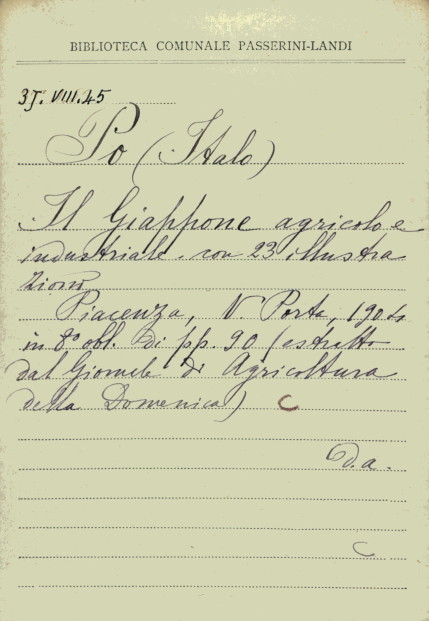 BIBLIOTECA COMUNALE PASSERINI-LANDI
3J. VIII.45
Po (Italo)
Il Giappone agricolo e
industriale. con 23 illustra
zioni
Piacenza, V. Porta, 1904
in 8° obl. di pp. 90 (estratto
dal Giornale di Agricoltura
della Domenica) C
D.a.
C